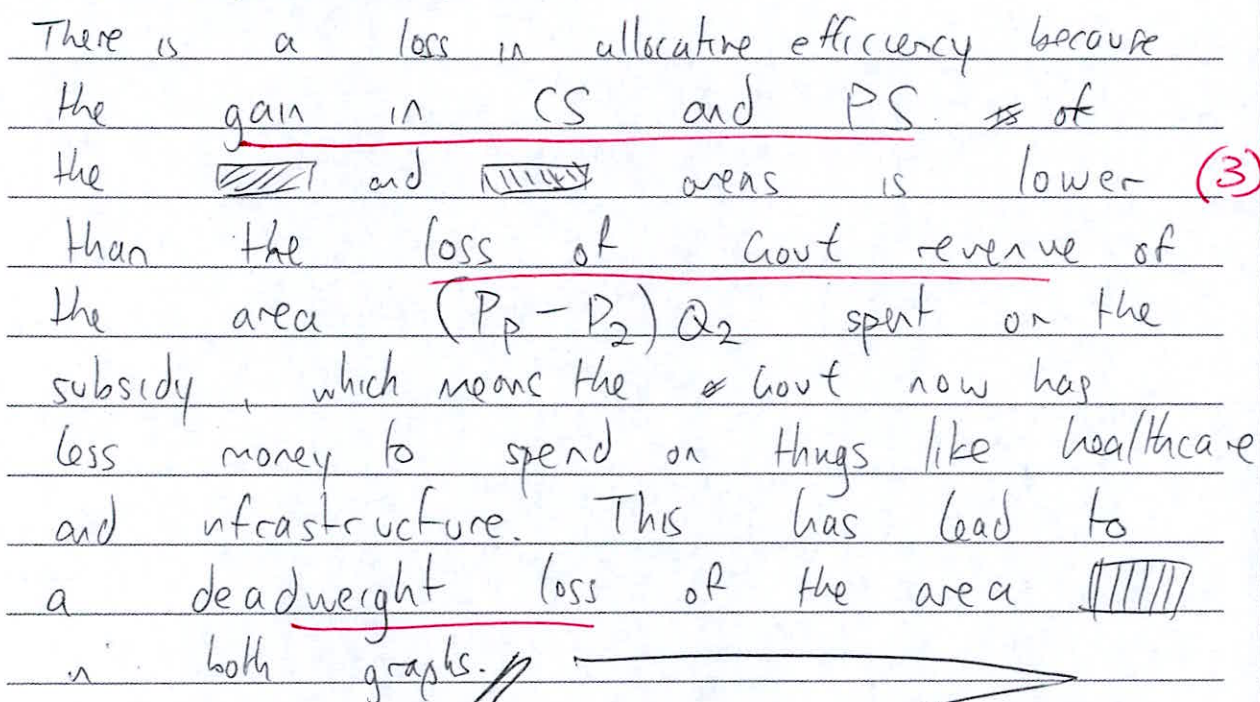 There is a loss in allocative efficiency because
the gain in CS and PS of
the and areas is lower (3)
than the loss of Govt revenue of
the area (Pp - P2) Q2 spent on the
subsidy, which means the Govt now has
less money to spend on things like healthcare
and nfrastructure. This has lead to
a deadweight loss of the area
in both graphs.